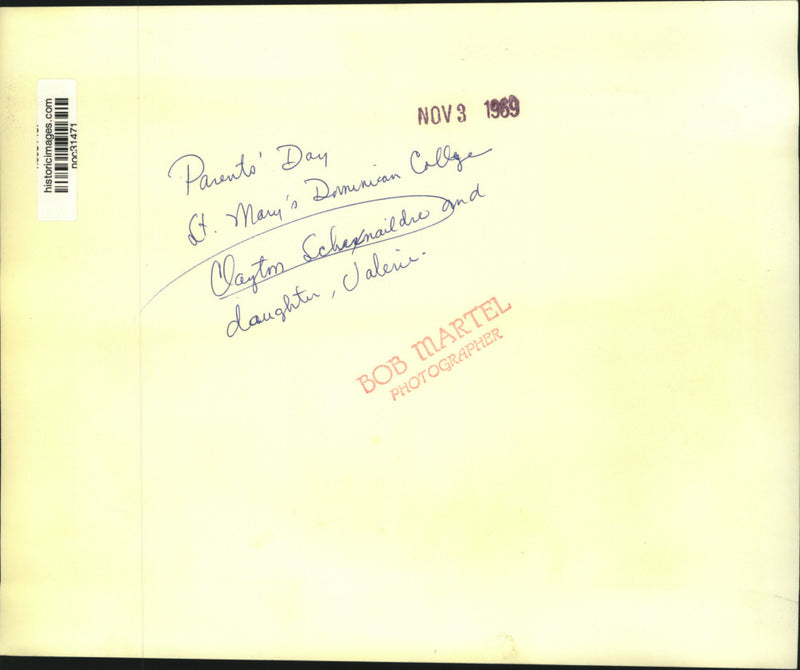 NOV 3 1969
historicimages.com
noc31471
Parents' Day
St. Mary's Dominican College
Clayton Schexnaildre and
daughter, Valerie.
BOB MARTEL
PHOTOGRAPHER